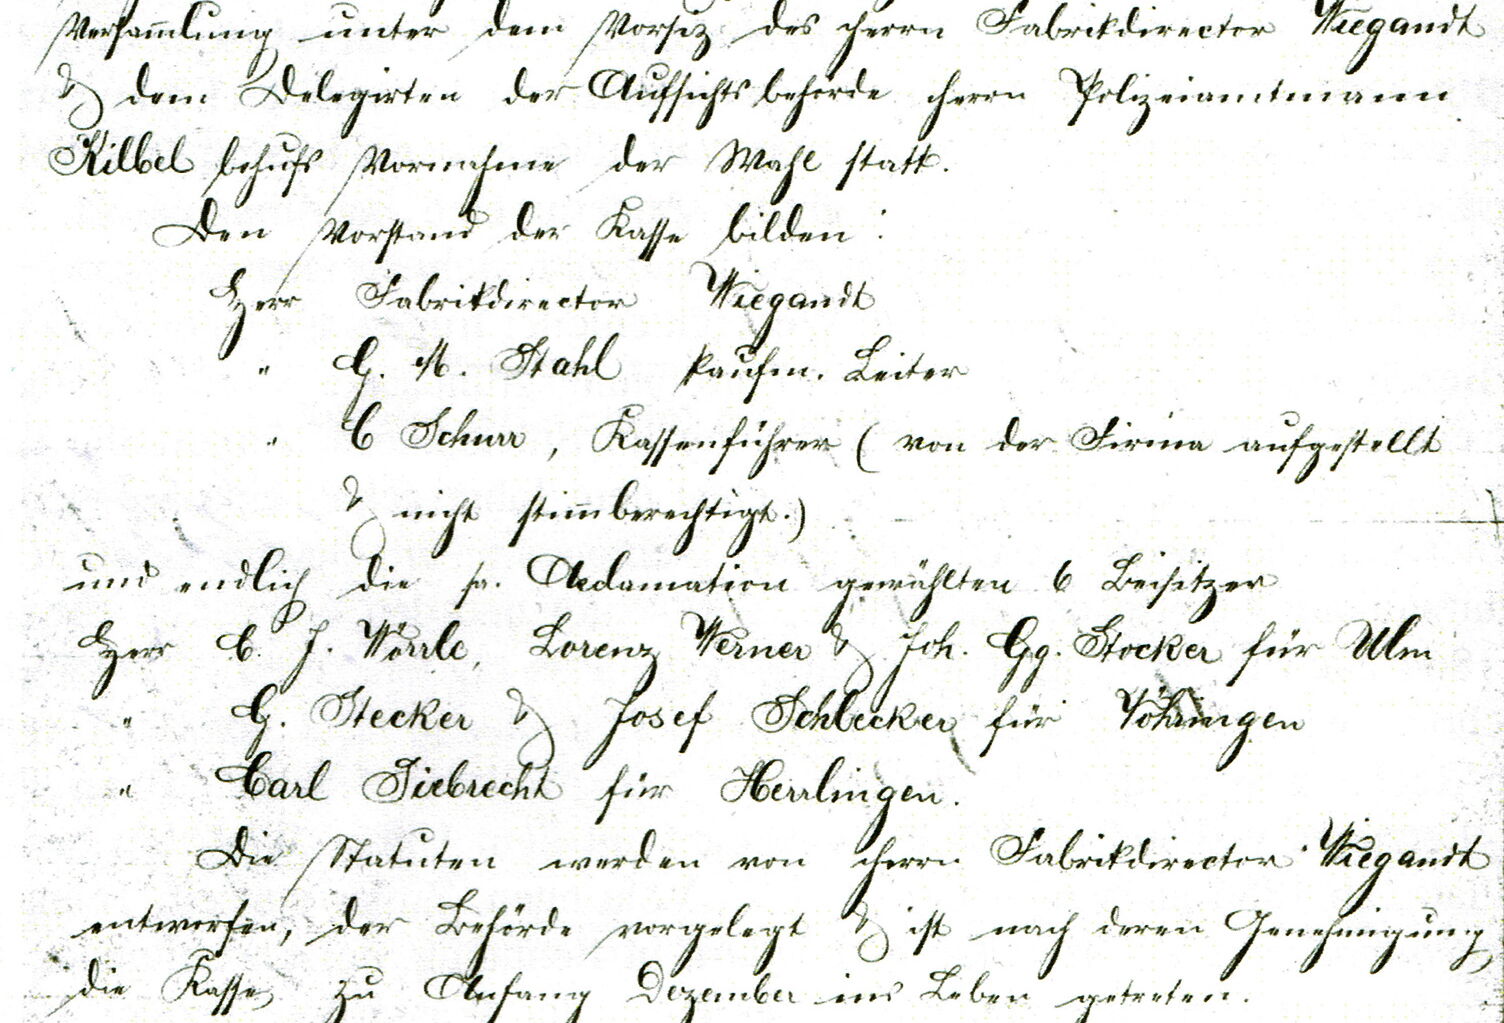 Versam̅lung unter dem Vorsiz des Herrn Fabrikdirector Wiegandt
& dem Delegirten der Aufsichtsbehörde Herrn Polizeiamtmann
Kilbel behufs Vornahme der Wahl statt.
Den Vorstand der Kasse bilden:
Herr Fabrikdirector Wiegandt
" G. M. Stahl kaufm. Leiter
" C Schurr, Kassenführer (von der Firma aufgestellt
& nicht stim̅berechtigt.)
und endlich die pr. Aclamation gewählten 6 Beisitzer
Herr C. J. Wörrle, Lorenz Werner & Joh. Gg. Stocker für Ulm
" G. Stecker & Josef Schlecker für Vöhringen
" Carl Siebrecht für Herrlingen.
Die Statuten werden von Herrn Fabrikdirector Wiegandt
entworfen, der Behörde vorgelegt & ist nach deren Genehmigung
die Kasse zu Anfang Dezember ins Leben getreten.